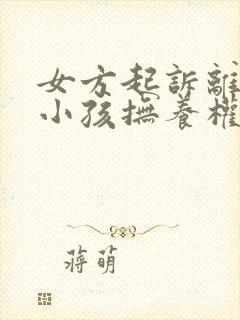 女方起訴離
小孩撫養權
蔣萌